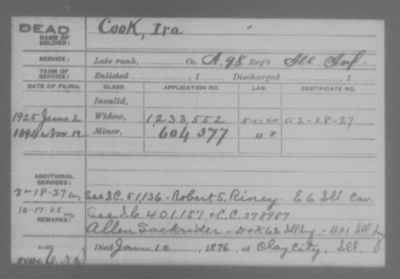 DEAD
NAME OF
SOLDIER:
Cook, Ira
SERVICE:
Late rank, Co. A. 98 Reg't Ill. Inf.
TERM OF
SERVICE:
Enlisted , 1 Discharged , 1
DATE OF FILING. CLASS APPLICATION NO. LAW. CERTIFICATE NO.
Invalid,
1925 June 2 Widow, 1233,552 2-28-27
1894 Nov. 12 Minor, 604377
ADDITIONAL
SERVICES:
2-18-27 See I.C. 51136 - Robert S. Riney - E 6 Ill Cav.
10-17-25
REMARKS:
See I.C. 401157, & C.C. 378787
Allen Sackrider - D & K 62 Ill
Died Jan 10, 1876, at Clay City, Ill.